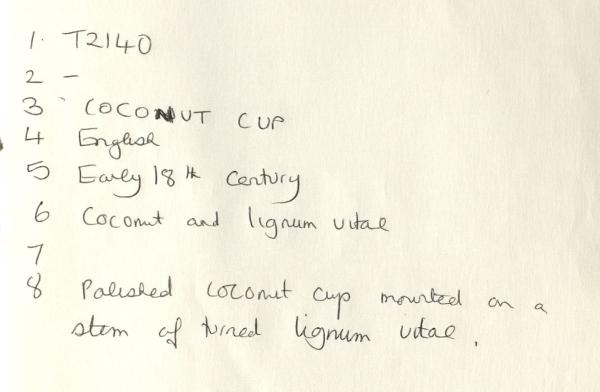 1. T2140
2 -
3 COCONUT CUP
4 English
5 Early 18th Century
6 Coconut and lignum vitae
7
8 Polished coconut cup mounted on a
stem of turned lignum vitae.